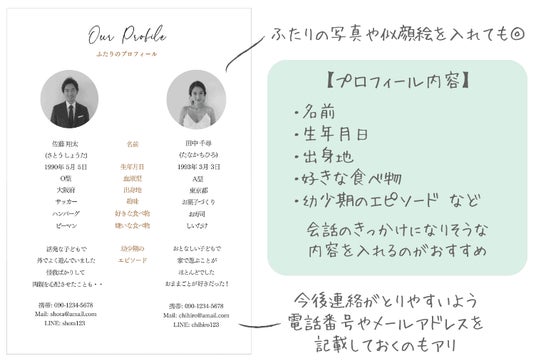 Our Profile
ふたりのプロフィール
佐藤 翔太 名前 田中 千尋
(さとうしょうた) (たなかちひろ)
1990年 5月 5日 生年月日 1993年 3月 3日
O型 血液型 A型
大阪府 出身地 東京都
サッカー 趣味 お菓子づくり
ハンバーグ 好きな食べ物 お寿司
ピーマン 嫌いな食べ物 しいたけ
活発な子どもで 幼少期の おとなしい子どもで
外でよく遊んでいました エピソード 家で遊ぶことが
怪我ばかりして ほとんどでした
両親を心配させたことも・・ おままごとが好きだった！
携帯: 090-1234-5678 携帯: 090-1234-5678
Mail: shota@amail.com Mail: chihiro@amail.com
LINE: shoto123 LINE: chihiro123
ふたりの写真や似顔絵を入れても◎
【プロフィール内容】
・名前
・生年月日
・出身地
・好きな食べ物
・幼少期のエピソード など
会話のきっかけになりそうな
内容を入れるのがおすすめ
今後連絡がとりやすいよう
電話番号やメールアドレスを
記載しておくのもアリ